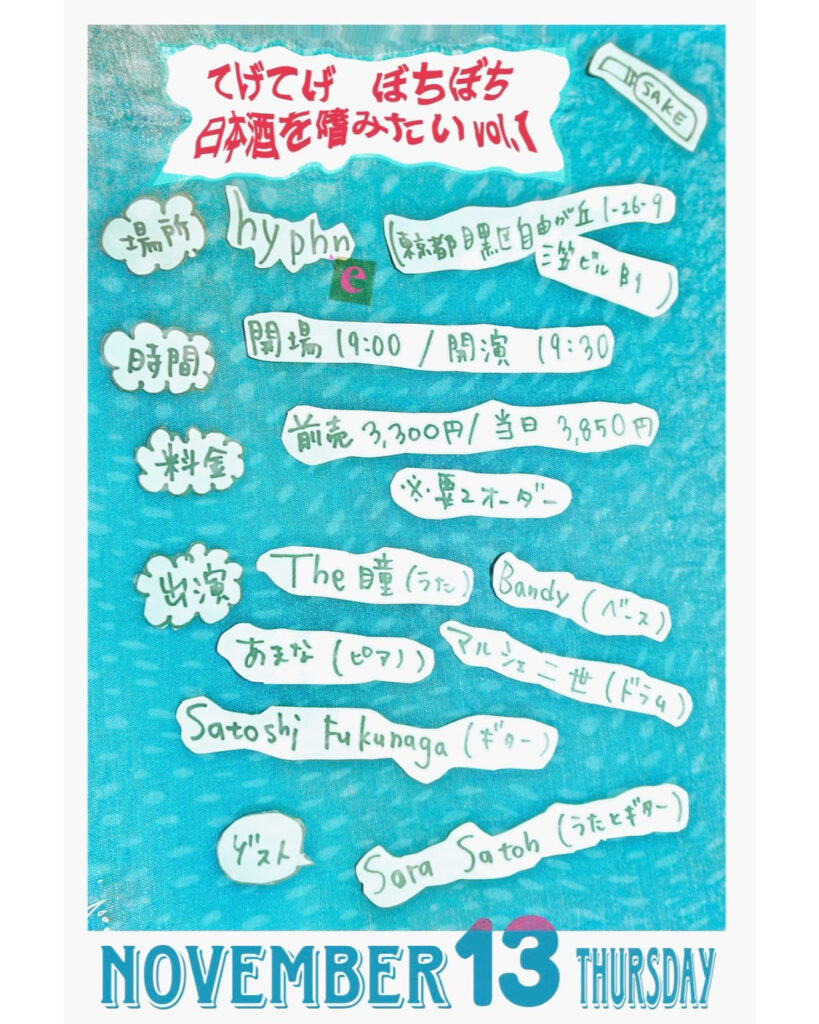 てげてげ ぼちぼち
日本酒を嗜みたい vol.1
SAKE
場所
hyphn
e
(東京都目黒区自由が丘1-26-9
三笠ビルB1)
時間
開場 19:00 / 開演 19:30
料金
前売 3,300円/当日 3,850円
※要2オーダー
出演
The 瞳(うた)
Bandy(ベース)
あまな(ピアノ)
マルシェ二世(ドラム)
Satoshi Fukunaga(ギター)
ゲスト
Sara Satoh(うたとギター)
NOVEMBER 13 THURSDAY